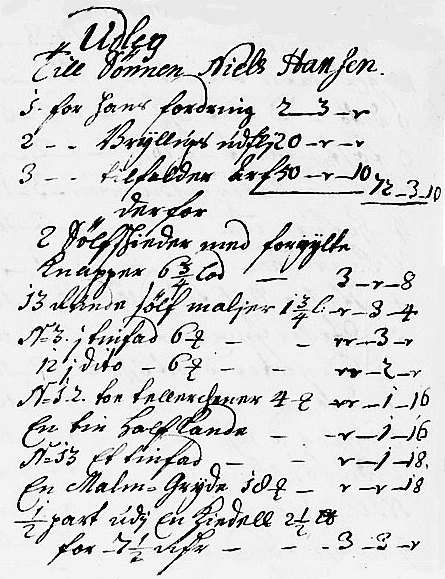 Udleg
Till Sönnen Niels Hansen.
1. for hans fordring 2 – 3 – r
2 – – Bryllups udst 20 – r – r
3 – – tilfalder Arf 50 – r – 10
72 – 3 – 10
derfor
2 Sölfskieder med forgylte
Knapper 6 3/4 lod – 3 – r – 8
13 Runde sölf maljer 1 3/4 l. – r – 3 – 4
N: 3. j tinfad 6 ℔ – – rr – 3 – r
12 j dito – 6 ℔ – – rr – 2 – r
N: 1. 2. toe tellerckener 4 ℔ rr – 1 – 16
En tin half Kande – – r – 1 – 16
N: 13 Et tinfad – – r – 1 – 18.
En Malm-Gryde 18 ℔ – r – r – 18
1/2 part udj En Kiedell 2 1/2 ℔
for – 7 1/2 – – 3 – 3 – r